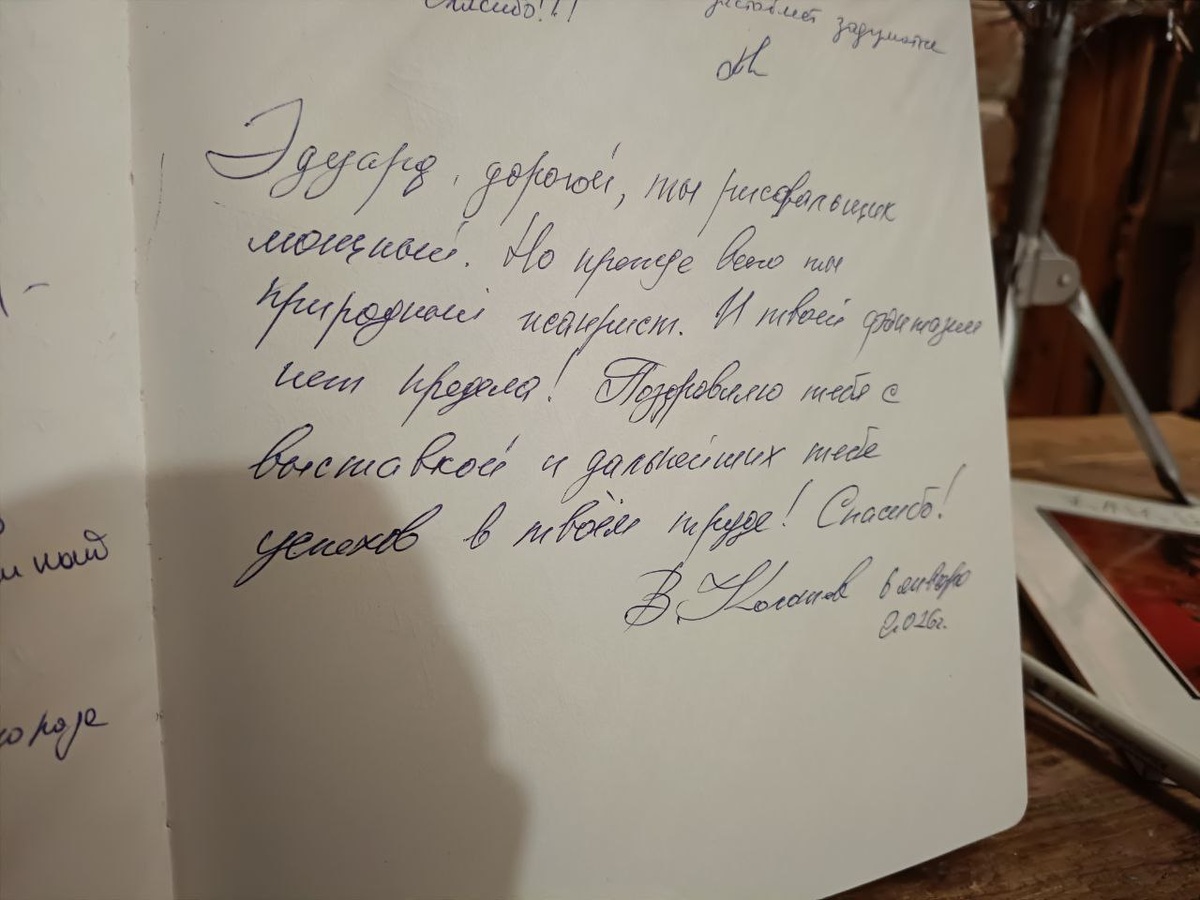 Спасибо!!!
заставляет задуматься
Эдуард, дорогой, ты рисовальщик
мощный. Но прежде всего ты
природный
И твоей фантазии
нет предела! Поздравляю тебя с
выставкой и дальнейших тебе
успехов в твоём труде! Спасибо!
В. 6 января
2026г.